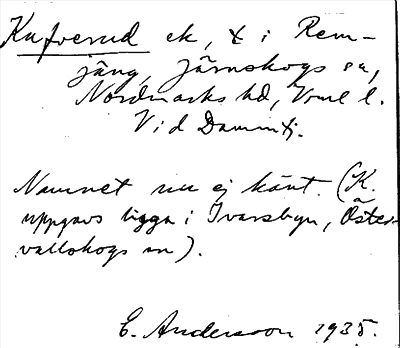 Kufverud ek, × i Rem-
jäng, Järnskogs sn,
Nordmarks hd, Vrml l.
Vid Dammtj.
Namnet nu ej känt. (K.
uppgavs ligga i Ivarsbyn, Öster-
vallskogs sn).
E. Andersson 1935.